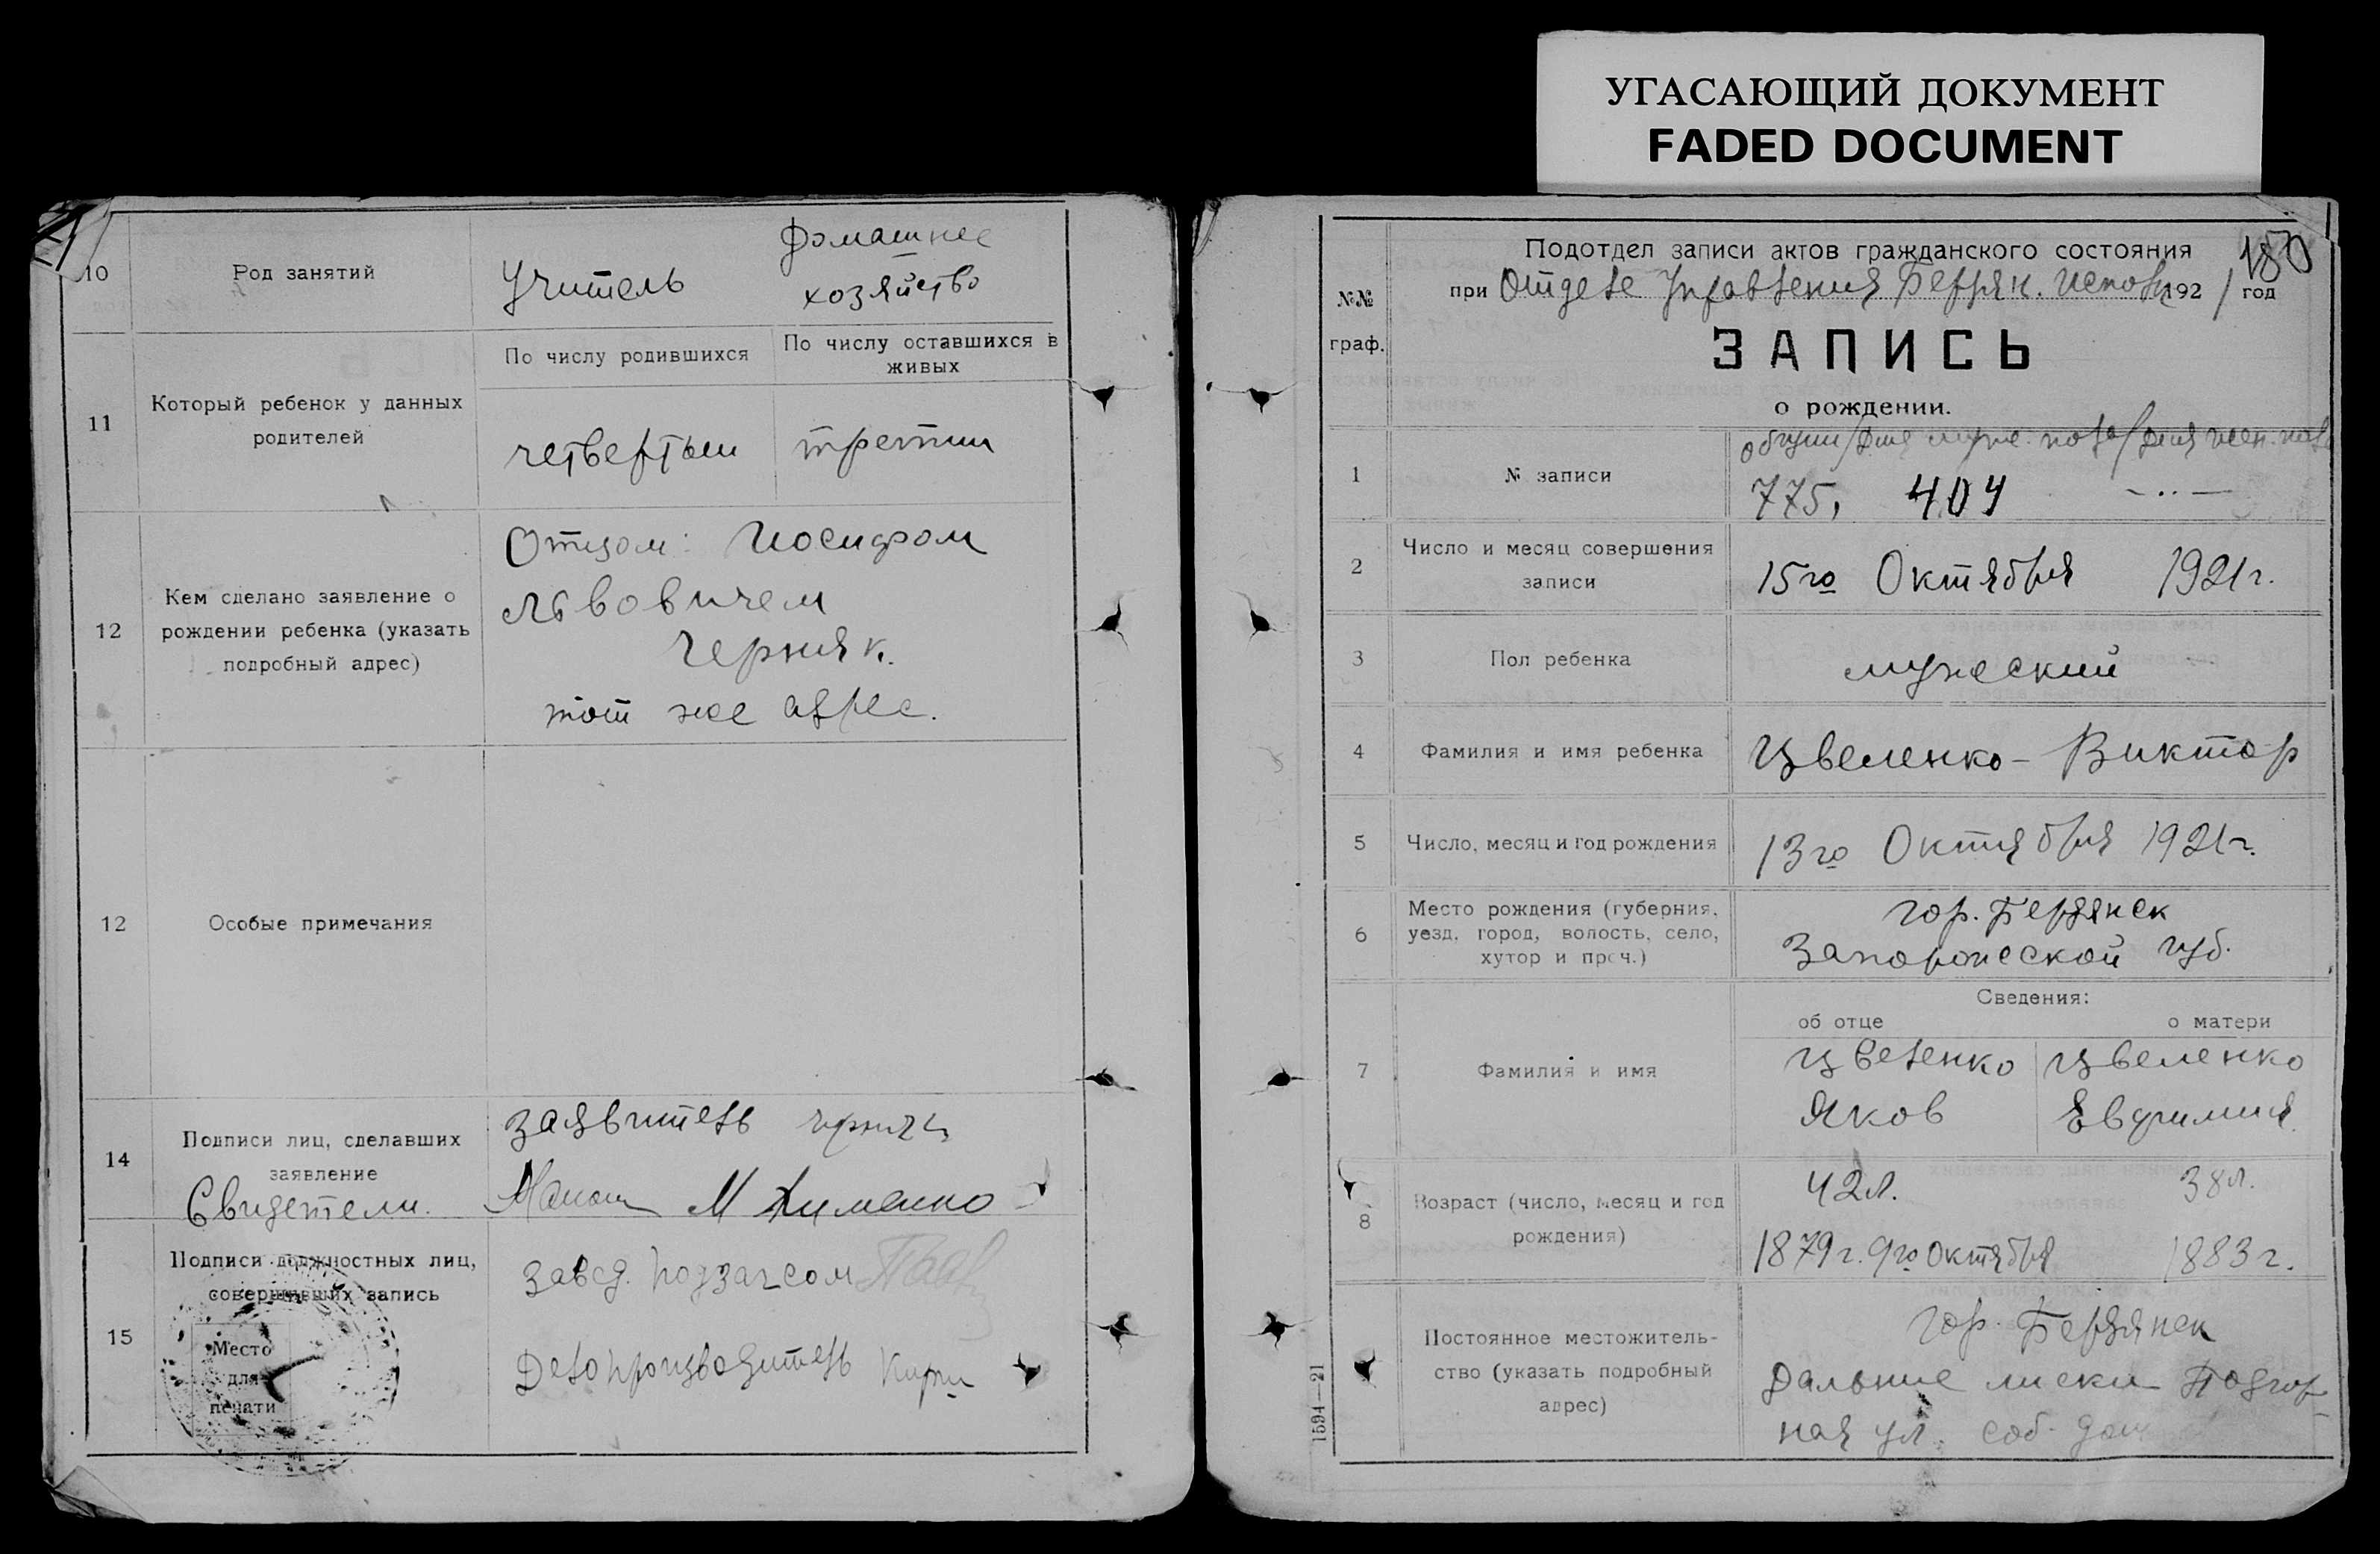 УГАСАЮЩИЙ ДОКУМЕНТ
FADED DOCUMENT
10
Род занятий
Учитель
Домашнее
хозяйство
11
Который ребенок у данных
родителей
По числу родившихся
По числу оставшихся в
живых
четвертый
третий
12
Кем сделано заявление о
рождении ребенка (указать
подробный адрес)
Отцом: Иосифом
Львовичем
Черняк.
тот же адрес.
12
Особые примечания
14
Подписи лиц, сделавших
заявление
Свидетели.
Заявитель
М
15
Подписи должностных лиц,
совершивших запись
Место
для
печати
Завед. подзагсом
Делопроизводитель
150
№№
граф.
Подотдел записи актов гражданского состояния
при Отделе Управления Бердян. 1921 год
ЗАПИСЬ
о рождении.
1
№ записи
общий/для муж. пола/для жен. пола
775, 404 – .. –
2
Число и месяц совершения
записи
15го Октября 1921г.
3
Пол ребенка
мужеский
4
Фамилия и имя ребенка
Цвеленко – Виктор
5
Число, месяц и год рождения
13го Октября 1921г.
6
Место рождения (губерния,
уезд, город, волость, село,
хутор и проч.)
гор. Бердянск
Запорожеской губ.
7
Фамилия и имя
Сведения:
об отце
о матери
Цвеленко
Яков
Цвеленко
Евфимия
8
Возраст (число, месяц и год
рождения)
42л.
1879г. 9го Октября
38л.
1883г.
Постоянное местожитель-
ство (указать подробный
адрес)
гор. Бердянск
Дальние лиски Подгор
ная ул. соб. дом
1594—21